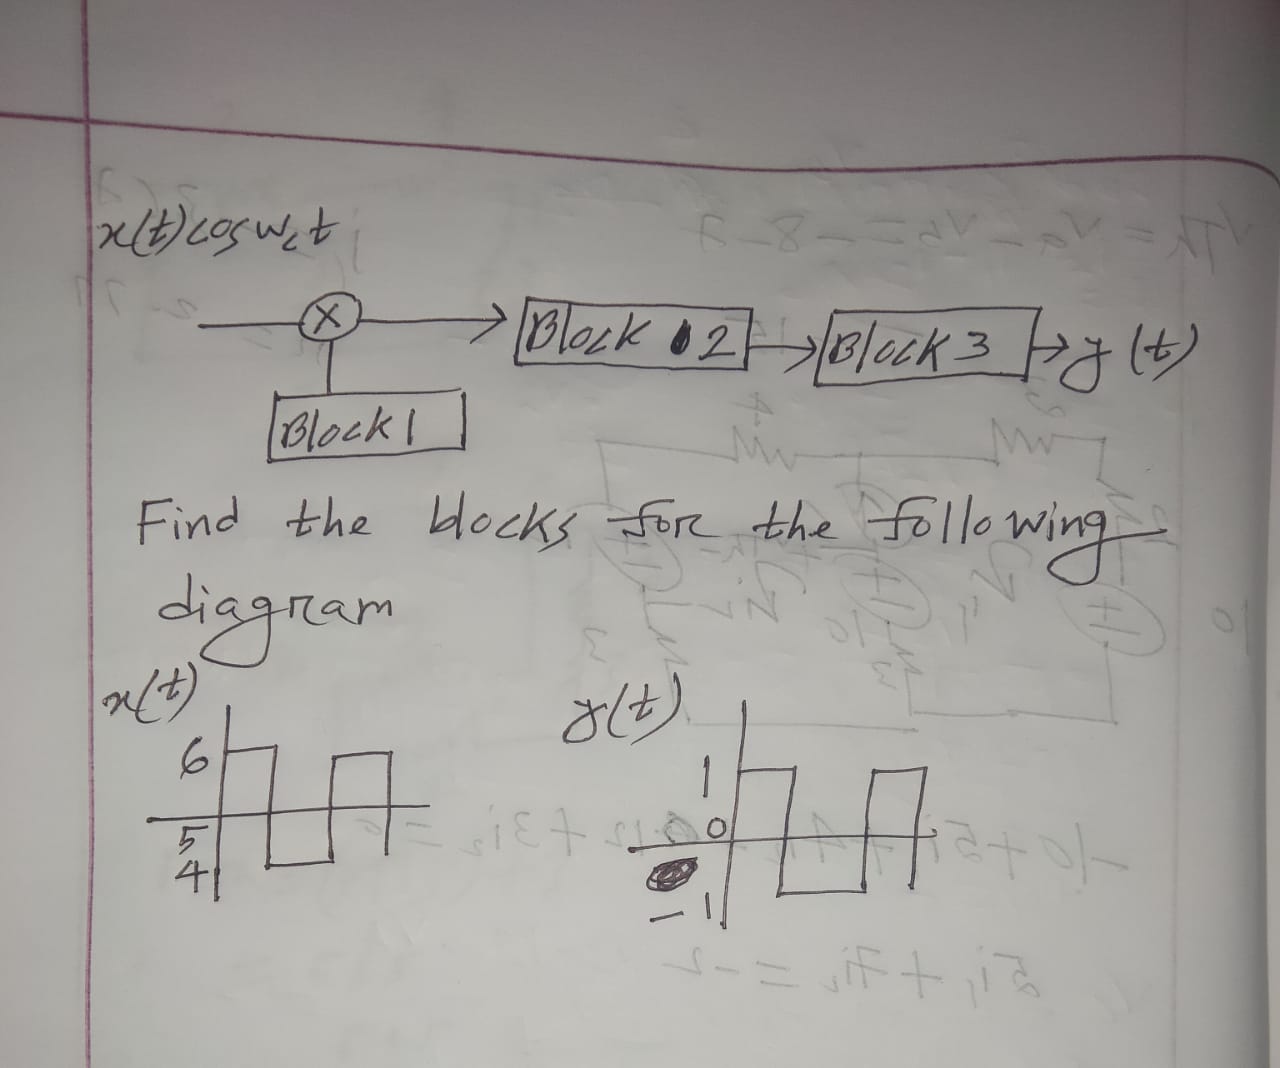 x(t)cosw_c t
X
Block 2
Block 3
y(t)
Block 1
Find the blocks for the following
diagram
x(t)
y(t)
6
5
4
1
0
-1